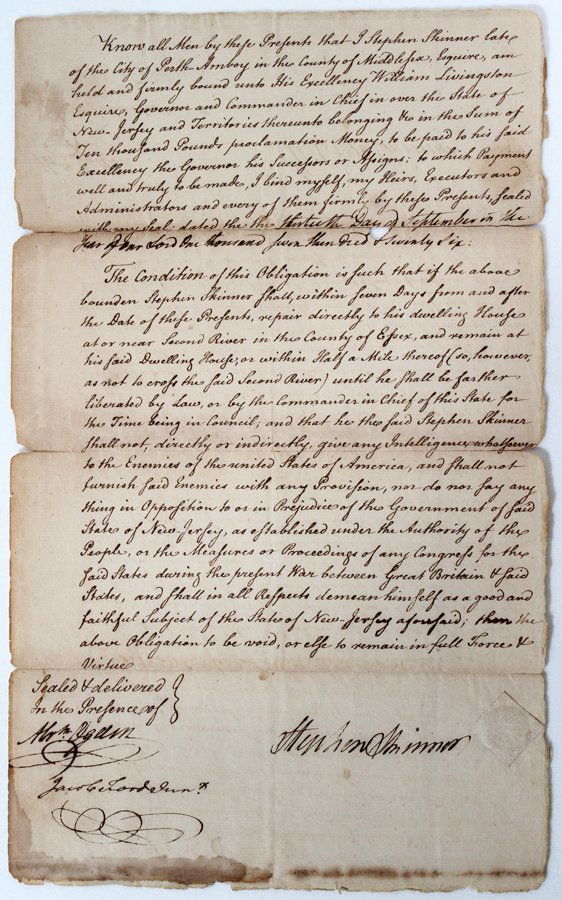 Know all Men by these Presents that I Stephen Skinner late
of the City of Perth Amboy in the County of Middlesex, Esquire, am
held and firmly bound unto His Excellency William Livingston
Esquire, Governor and Commander in Chief in over the State of
New-Jersey and Territories thereunto belonging &c in the Sum of
Ten thousand Pounds proclamation Money, to be paid to his said
Excellency the Governor his Successors or Assigns; to which Payment
well and truly to be made, I bind myself, my Heirs, Executors and
Administrators and every of them firmly by these Presents, Sealed
with my Seal: dated the the thirtieth Day of September in the
Year of our Lord One thousand seven Hundred & seventy Six:
The Condition of this Obligation is such that if the above
bounden Stephen Skinner shall, within Seven Days from and after
the Date of these Presents, repair directly to his dwelling House
at or near Second River in the County of Essex, and remain at
his said Dwelling House; or within Half a Mile thereof (so, however,
as not to cross the said Second River) until he shall be farther
liberated by Law, or by the Commander in Chief of this State for
the Time being in Council; and that he the said Stephen Skinner
shall not, directly or indirectly, give any Intelligence whatsoever
to the Enemies of the united States of America, and shall not
furnish said Enemies with any Provision, nor do nor say any
thing in Opposition to or in Prejudice of the Government of said
State of New Jersey, as established under the Authority of the
People, or the Measures or Proceedings of any Congress for the
said States during the present War between Great Britain & said
States, and shall in all Respects demean himself as a good and
faithful Subject of the State of New-Jersey aforesaid; then the
above Obligation to be void, or else to remain in full Force &
Virtue
Sealed & delivered
In the Presence of
Abrm Ogden
Stephen Skinner
Jacob Ford Junr